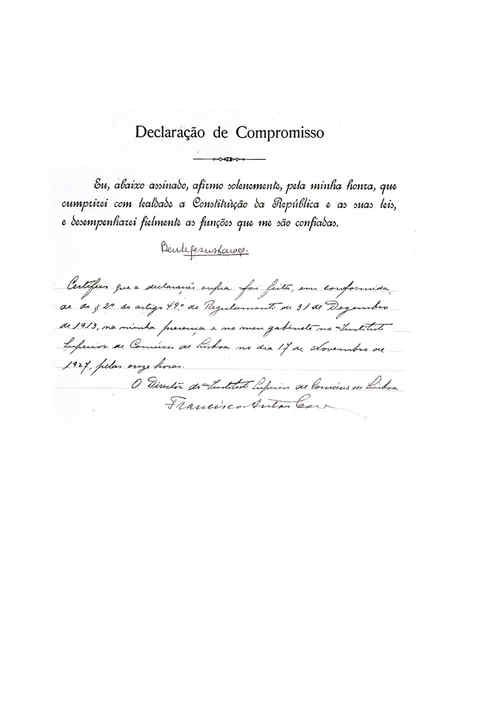 Declaração de Compromisso
Eu, abaixo assinado, afirmo solenemente, pela minha honra, que
cumprirei com lealdade a Constituïção da República e as suas leis,
e desempenharei fielmente as funções que me são confiadas.
Certifico que a declaração supra foi feita, em conformida
de do § 2º do artigo 49º do Regulamento de 31 de Dezembro
de 1913, na minha presença e no meu gabinete no Instituto
Superior de Comércio de Lisboa no dia 17 de Novembro de
1927, pelas onze horas.
O Director do Instituto Superior de Comércio de Lisboa
Francisco Antonio